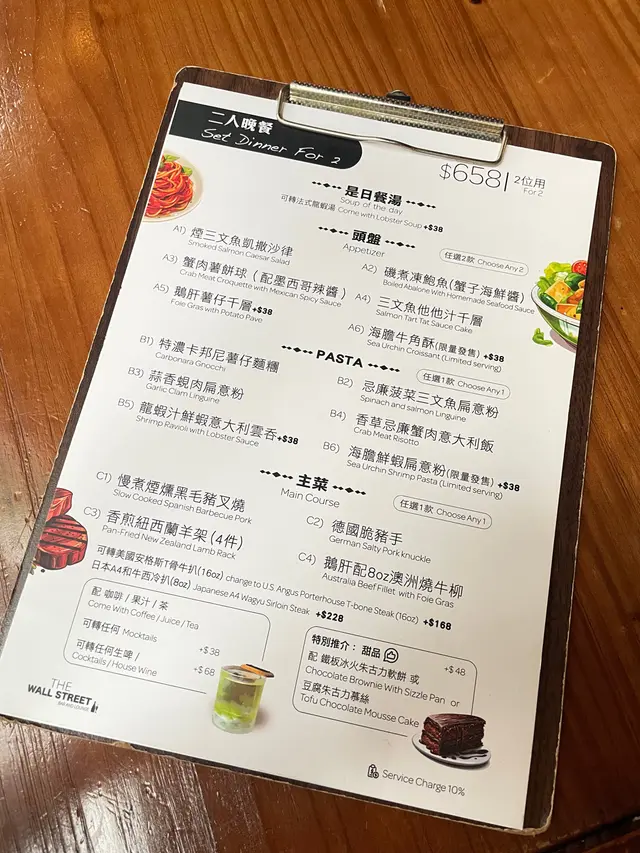 二人晚餐
Set Dinner For 2
$658 | 2位用
For 2
是日餐湯
Soup of the day
可轉法式龍蝦湯 Come with Lobster Soup +$38
頭盤
Appetizer
任選2款 Choose Any 2
A1) 煙三文魚凱撒沙律
Smoked Salmon Caesar Salad
A2) 磯煮凍鮑魚(蟹子海鮮醬)
Boiled Abalone With Homemade Seafood Sauce
A3) 蟹肉薯餅球(配墨西哥辣醬)
Crab Meat Croquette with Mexican Spicy Sauce
A4) 三文魚他他汁千層
Salmon Tart Tat Sauce Cake
A5) 鵝肝薯仔千層 +$38
Foie Gras with Potato Pave
A6) 海膽牛角酥(限量發售) +$38
Sea Urchin Croissant (Limited serving)
PASTA
任選1款 Choose Any 1
B1) 特濃卡邦尼薯仔麵糰
Carbonara Gnocchi
B2) 忌廉菠菜三文魚扁意粉
Spinach and salmon Linguine
B3) 蒜香蜆肉扁意粉
Garlic Clam Linguine
B4) 香草忌廉蟹肉意大利飯
Crab Meat Risotto
B5) 龍蝦汁鮮蝦意大利雲吞 +$38
Shrimp Ravioli with Lobster Sauce
B6) 海膽鮮蝦扁意粉(限量發售) +$38
Sea Urchin Shrimp Pasta (Limited serving)
主菜
Main Course
任選1款 Choose Any 1
C1) 慢煮煙燻黑毛豬叉燒
Slow Cooked Spanish Barbecue Pork
C2) 德國脆豬手
German Salty Pork knuckle
C3) 香煎紐西蘭羊架(4件)
Pan-Fried New Zealand Lamb Rack
C4) 鵝肝配8oz澳洲燒牛柳
Australia Beef Fillet with Foie Gras
可轉美國安格斯T骨牛扒(16oz) change to U.S. Angus Porterhouse T-bone Steak (16oz) +$168
日本A4和牛西冷扒(8oz) Japanese A4 Wagyu Sirloin Steak +$228
配 咖啡 / 果汁 / 茶
Come With Coffee / Juice / Tea
可轉任何 Mocktails +$38
可轉任何生啤 /
Cocktails / House Wine +$68
特別推介：甜品
配 鐵板冰火朱古力軟餅 或 +$48
Chocolate Brownie With Sizzle Pan or
豆腐朱古力慕絲
Tofu Chocolate Mousse Cake
THE
WALL STREET
BAR AND LOUNGE
Service Charge 10%